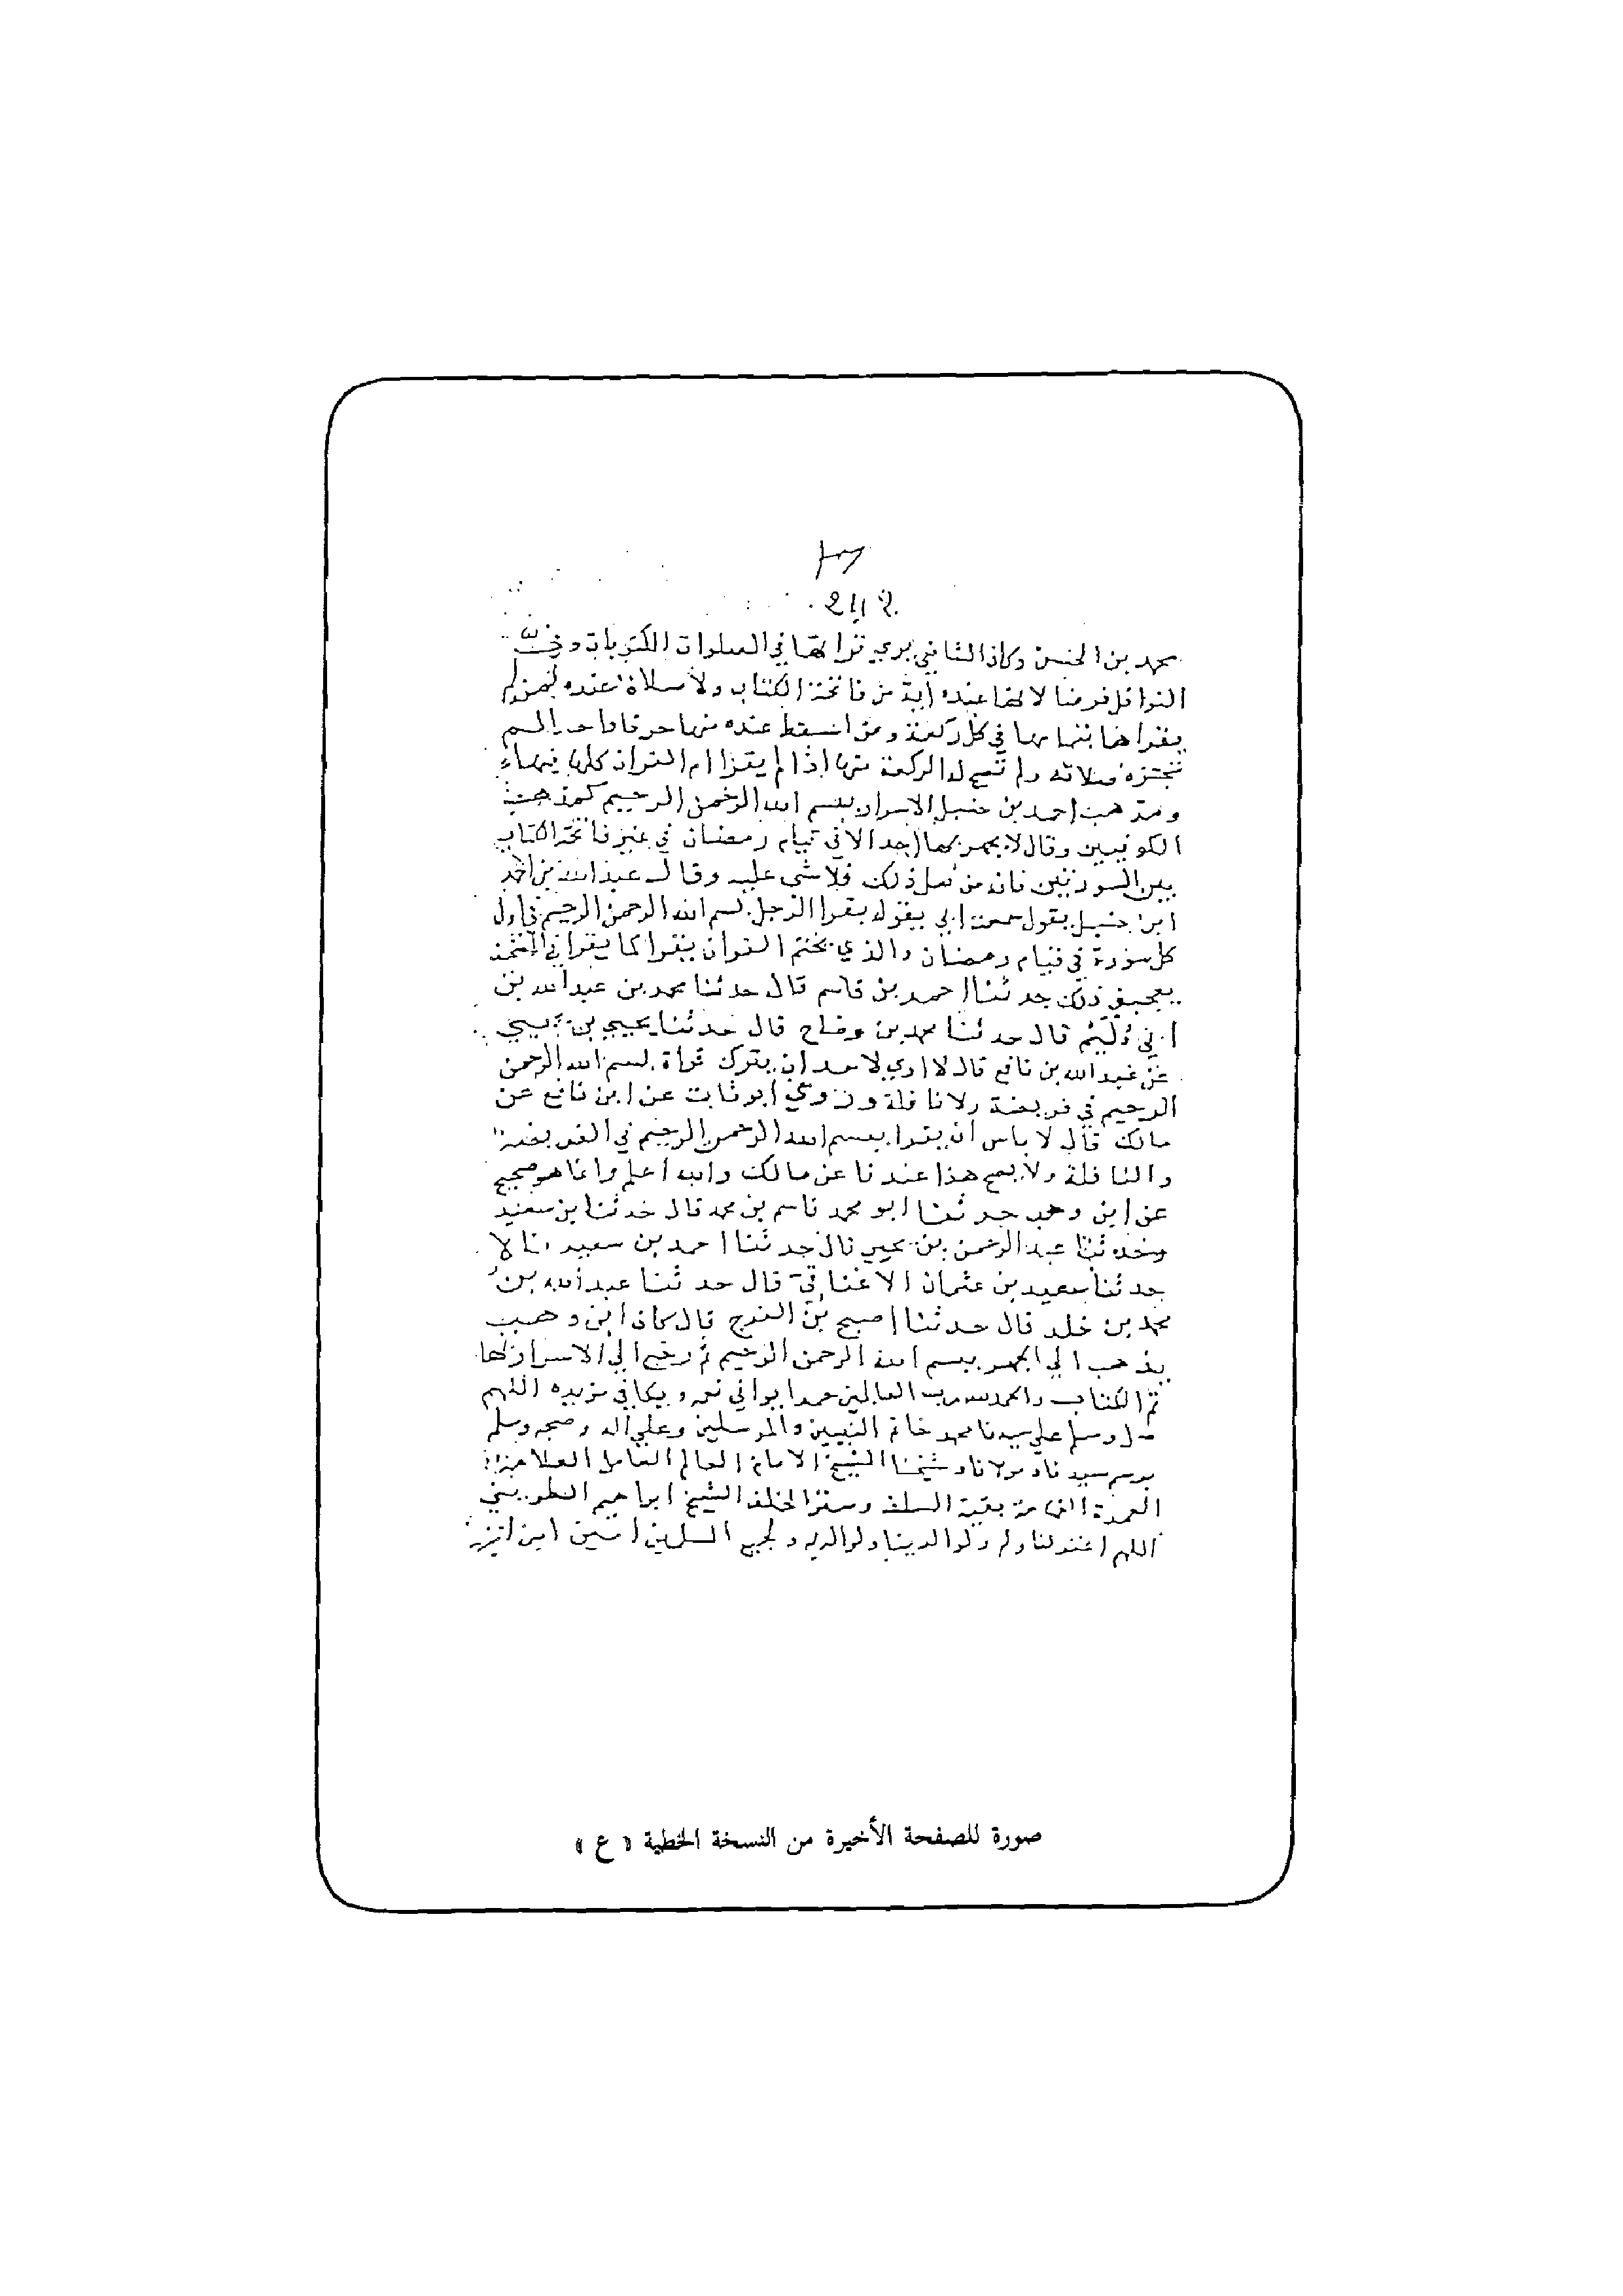 محمد بن الحسن وكان الشافعي يرى قراتها في الصلوات المكتوبات وفي
النوافل فرضا لانها عنده اية من فاتحة الكتاب ولا صلاة عنده لمن لم
يقراها بتمامها في كل ركعة ومن اسقط عنده منها حرفا واحدا لم
تجزه صلاته ولم تصح له الركعة متى ما اذا لم يقرا ام القران كلها فيها
ومذهب احمد بن حنبل الاسرار ببسم الله الرحمن الرحيم كمذهب
الكوفيين وقال لا يجهر بها احد الا في قيام رمضان في غير فاتحة الكتاب
بين السورتين فانه من فعل ذلك فلا شي عليه وقال عبد الله بن احمد
ابن حنبل يقول سمعت ابي يقول يقرا الرجل بسم الله الرحمن الرحيم في اول
كل سورة في قيام رمضان والذي يختم القران يقرا كما يقرا في المصحف
يعجبني ذلك حدثنا احمد بن قاسم قال حدثنا محمد بن عبد الله بن
ابي دليم قال حدثنا محمد بن وضاح قال حدثنا يحيى بن يحيى
عن عبد الله بن نافع قال لا ارى لاحد ان يترك قراة بسم الله الرحمن
الرحيم في فريضة ولا نافلة وروى ابو ثابت عن ابن نافع عن
مالك قال لا باس ان يقرا ببسم الله الرحمن الرحيم في الفريضة
والنافلة ولا يصح هذا عندنا عن مالك والله اعلم وانما هو صحيح
عن ابن وهب حدثنا ابو محمد قاسم بن محمد قال حدثنا بن سعيد
وحدثنا عبد الرحمن بن يحيى قال حدثنا احمد بن سعيد قالا
حدثنا سعيد بن عثمان الاعناقي قال حدثنا عبد الله بن
محمد بن خلد قال حدثنا اصبح بن الفرج قال كان ابن وهب
يذهب الى الجهر ببسم الله الرحمن الرحيم ثم رجع الى الاسرار بها
تم الكتاب والحمد لله رب العالمين حمدا يوافي نعمه ويكافي مزيده اللهم
صل وسلم على سيدنا محمد خاتم النبيين والمرسلين وعلى اله وصحبه وسلم
برسم سيدنا ومولانا وشيخنا الشيخ الامام العالم العامل العلامة
العمدة الفهامة بقية السلف الخلف الشيخ ابراهيم
اللهم اغفر لنا وله ولوالدينا ولوالديه ولجميع المسلمين امين امين
صورة للصفحة الأخيرة من النسخة الخطية « ع »